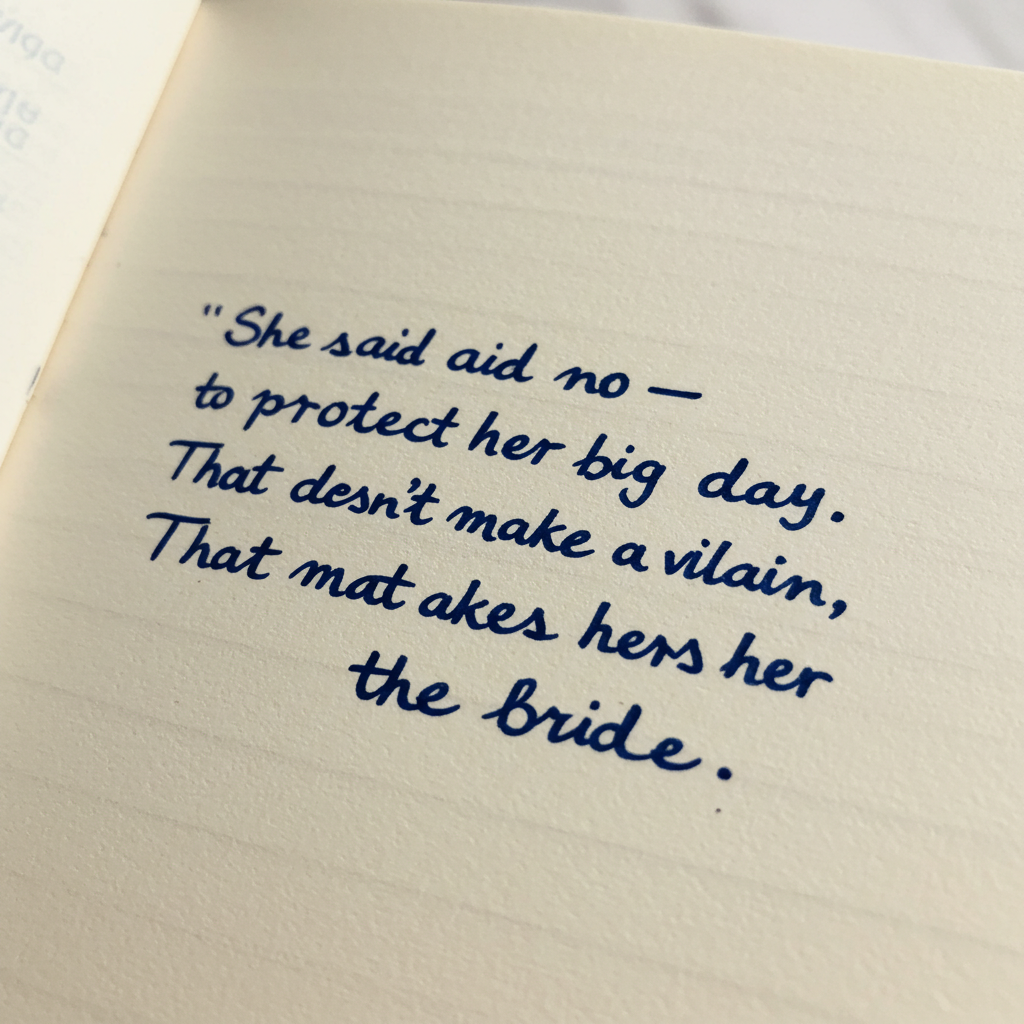 "She said aid no —
to protect her big day.
That desn't make a vilain,
That mat akes hers her
the bride.